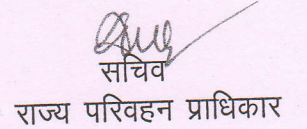 सचिव
राज्य परिवहन प्राधिकार